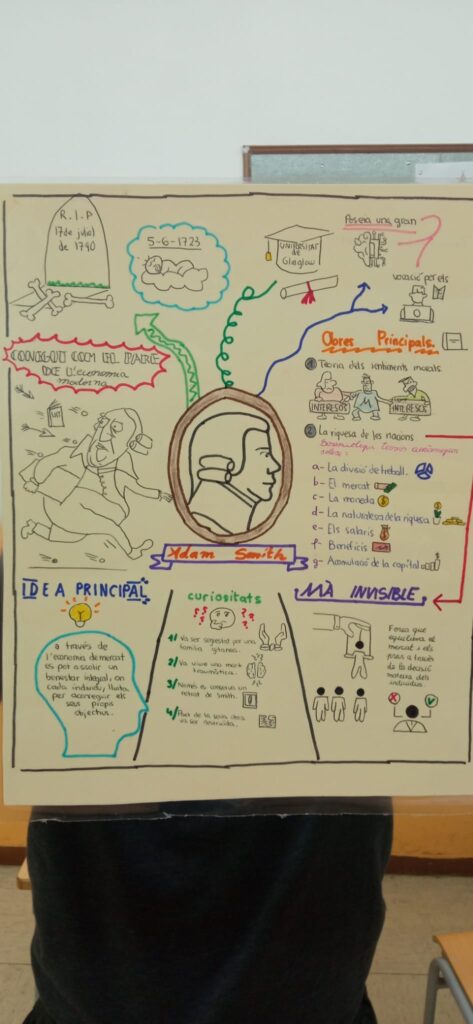 R.I.P
17 de juliol
de 1790
5-6-1723
UNIVERSITAT
de
Glasgow
Poseïa una gran
vocació pels
CONEGUT COM EL PARE
DE L'economia
moderna
Obres Principals.
1 Teoria dels sentiments morals
INTERESOS
INTERESOS
2 La riquesa de les nacions
a- La divisió de treball.
b- El mercat
c- La moneda
d- La naturalesa de la riquesa
e- Els salaris
f- Beneficis
g- Acumulació de la capital
Adam Smith
IDEA PRINCIPAL
"a través de
l'economia de mercat
es pot assolir un
benestar integral, on
cada individu lluita
per aconseguir els
seus propis
objectius.
curiositats
1/ Va ser segrestat per una
família gitana.
2/ Va viure una mort
traumàtica.
3/ Només es conserva un
retrat de Smith.
4/ Part de la seva obra
va ser destruïda.
MÀ INVISIBLE
Força que
equilibra el
mercat i els
preus a través
de la decisió
mateixa dels
individus